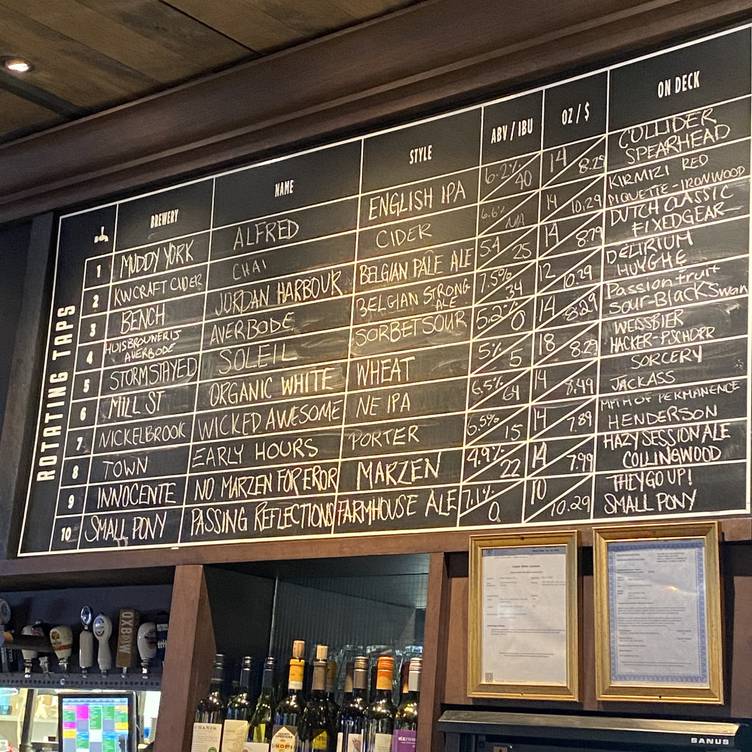 BREWERY NAME STYLE ABV / IBU OZ / $ ON DECK
ROTATING TAPS
1 MUDDY YORK ALFRED ENGLISH IPA 6.2% 40 14 8.29 COLLIDER SPEARHEAD
2 KW CRAFT CIDER CHAI CIDER 6.6% N/A 14 10.29 KIRMIZI RED PIQUETTE-IRONWOOD
3 BENCH JORDAN HARBOUR BELGIAN PALE ALE 5.4 25 14 8.79 DUTCH CLASSIC FIXEDGEAR
4 HUISBROUWERIJ AVERBODE AVERBODE BELGIAN STRONG ALE 7.5% 34 12 10.79 DELIRIUM HUYGHE
5 STORMSTAYED SOLEIL SORBET SOUR 5.2% 0 14 8.29 Passion Fruit Sour-Black Swan
6 MILL ST ORGANIC WHITE WHEAT 5% 5 18 8.29 WEISSBIER HACKER-PSCHORR
7 NICKELBROOK WICKED AWESOME NE IPA 6.5% 64 14 8.49 SORCERY JACKASS
8 TOWN EARLY HOURS PORTER 5.5% 15 14 7.89 MATH OF PERMANENCE HENDERSON
9 INNOCENTE NO MARZEN FOR EROR MARZEN 4.9% 22 14 7.99 HAZY SESSION ALE COLLINGWOOD
10 SMALL PONY PASSING REFLECTIONS FARMHOUSE ALE 7.1% 0 10 10.29 THEY GO UP! SMALL PONY
SANUS